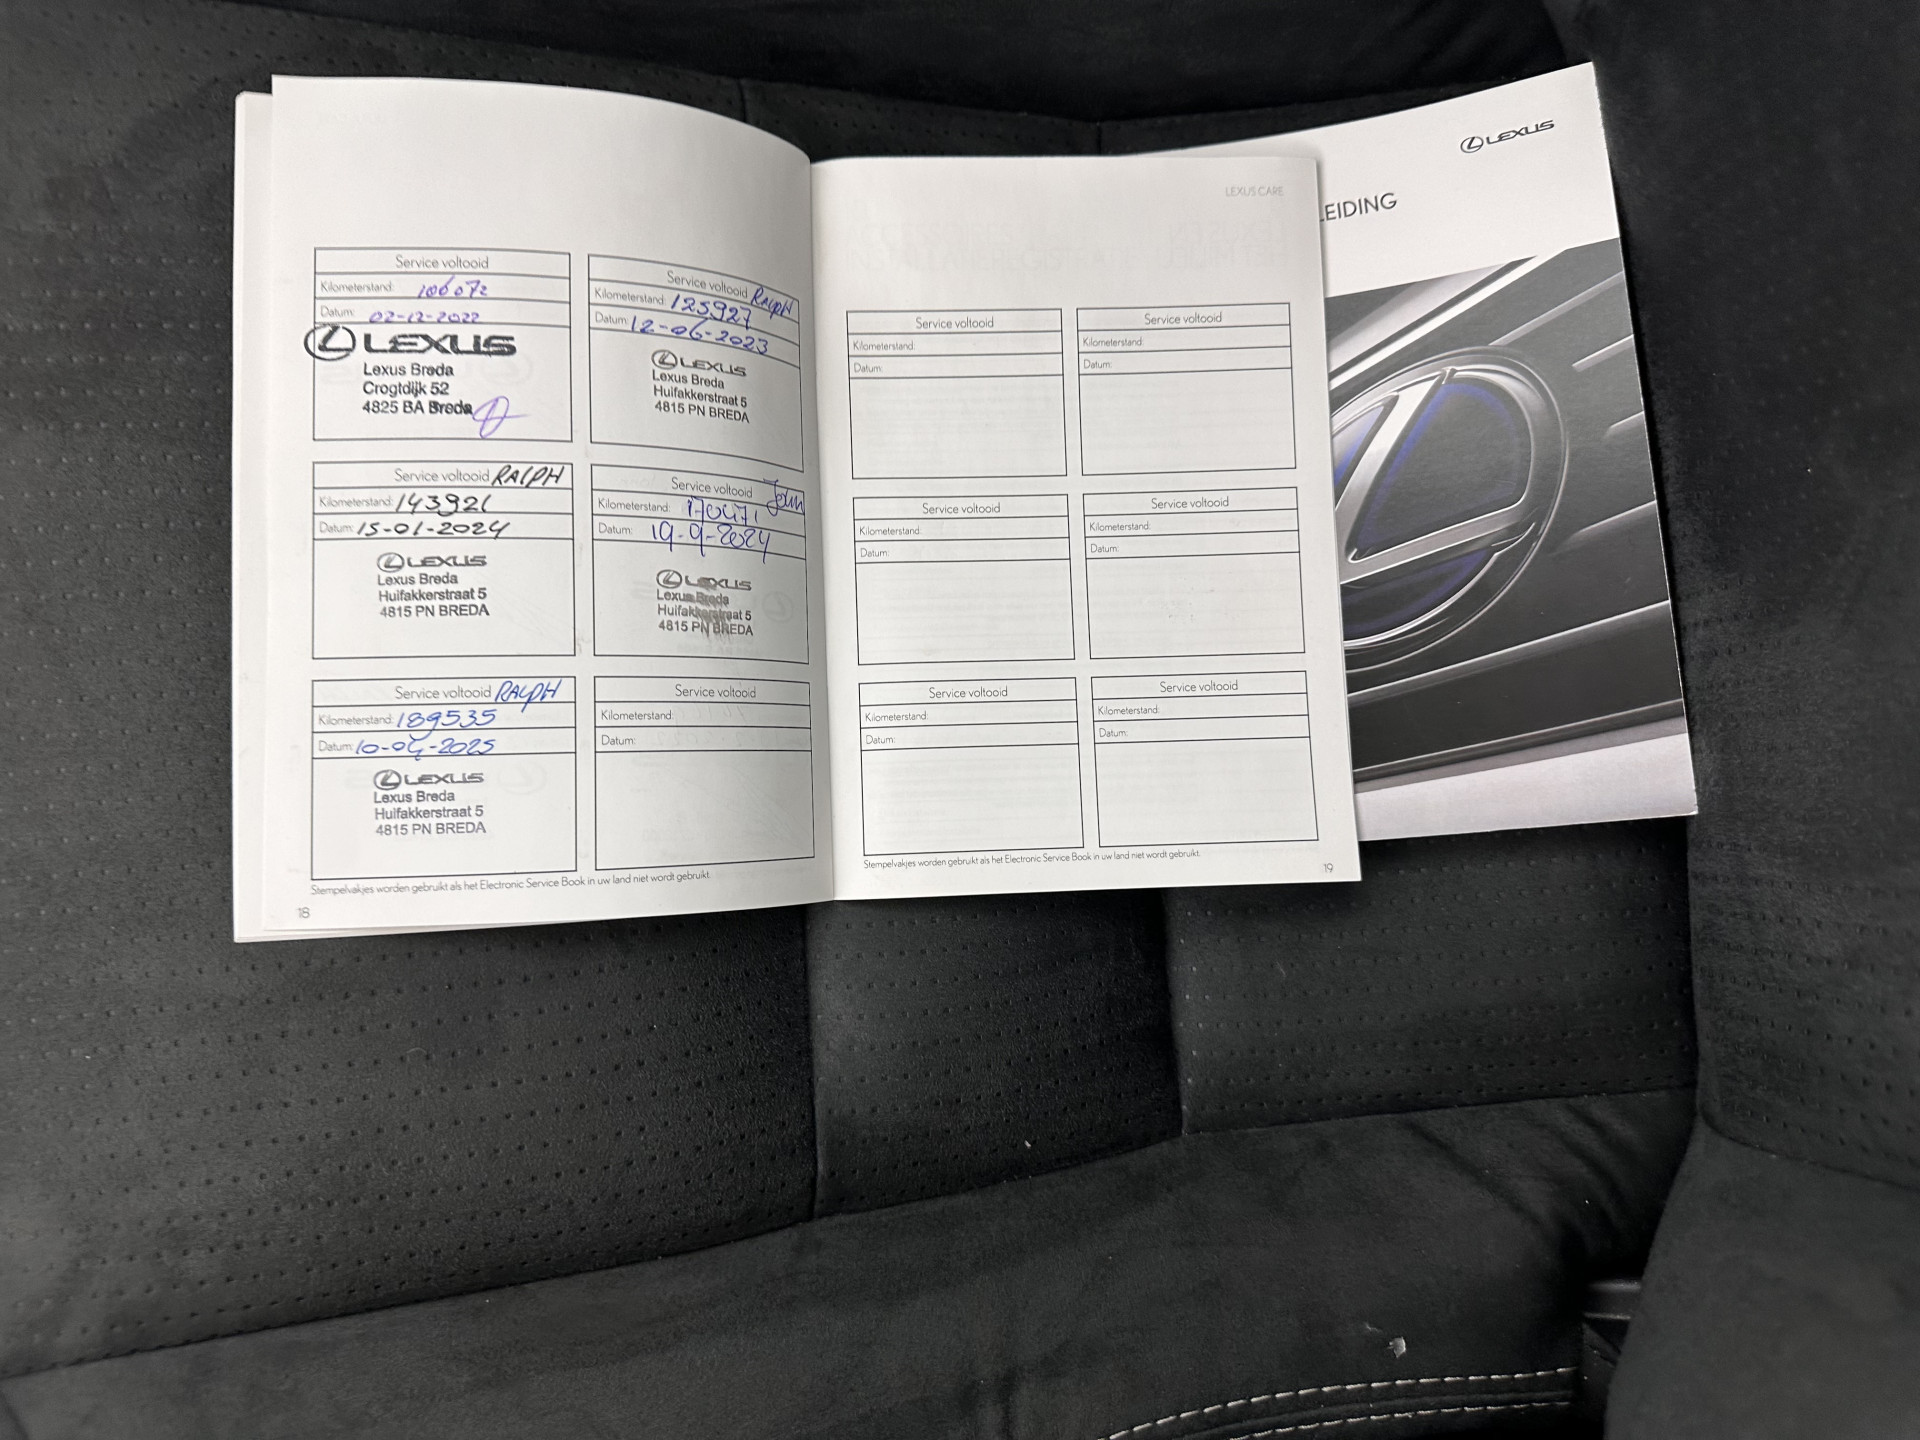 Service voltooid
Kilometerstand: 106072
Datum: 02-12-2022
LEXUS
Lexus Breda
Crogtdijk 52
4825 BA Breda
Service voltooid RALPH
Kilometerstand: 125927
Datum: 12-06-2023
LEXUS
Lexus Breda
Huifakkerstraat 5
4815 PN BREDA
Service voltooid RALPH
Kilometerstand: 143921
Datum: 15-01-2024
LEXUS
Lexus Breda
Huifakkerstraat 5
4815 PN BREDA
Service voltooid John
Kilometerstand: 170471
Datum: 19-9-2024
LEXUS
Lexus Breda
Huifakkerstraat 5
4815 PN BREDA
Service voltooid RALPH
Kilometerstand: 189535
Datum: 10-04-2025
LEXUS
Lexus Breda
Huifakkerstraat 5
4815 PN BREDA
Service voltooid
Kilometerstand:
Datum:
Stempelvakjes worden gebruikt als het Electronic Service Book in uw land niet wordt gebruikt.
18
LEXUS CARE
Service voltooid
Kilometerstand:
Datum:
Service voltooid
Kilometerstand:
Datum:
Service voltooid
Kilometerstand:
Datum:
Service voltooid
Kilometerstand:
Datum:
Service voltooid
Kilometerstand:
Datum:
Service voltooid
Kilometerstand:
Datum:
Stempelvakjes worden gebruikt als het Electronic Service Book in uw land niet wordt gebruikt.
19
LEXUS
LEIDING